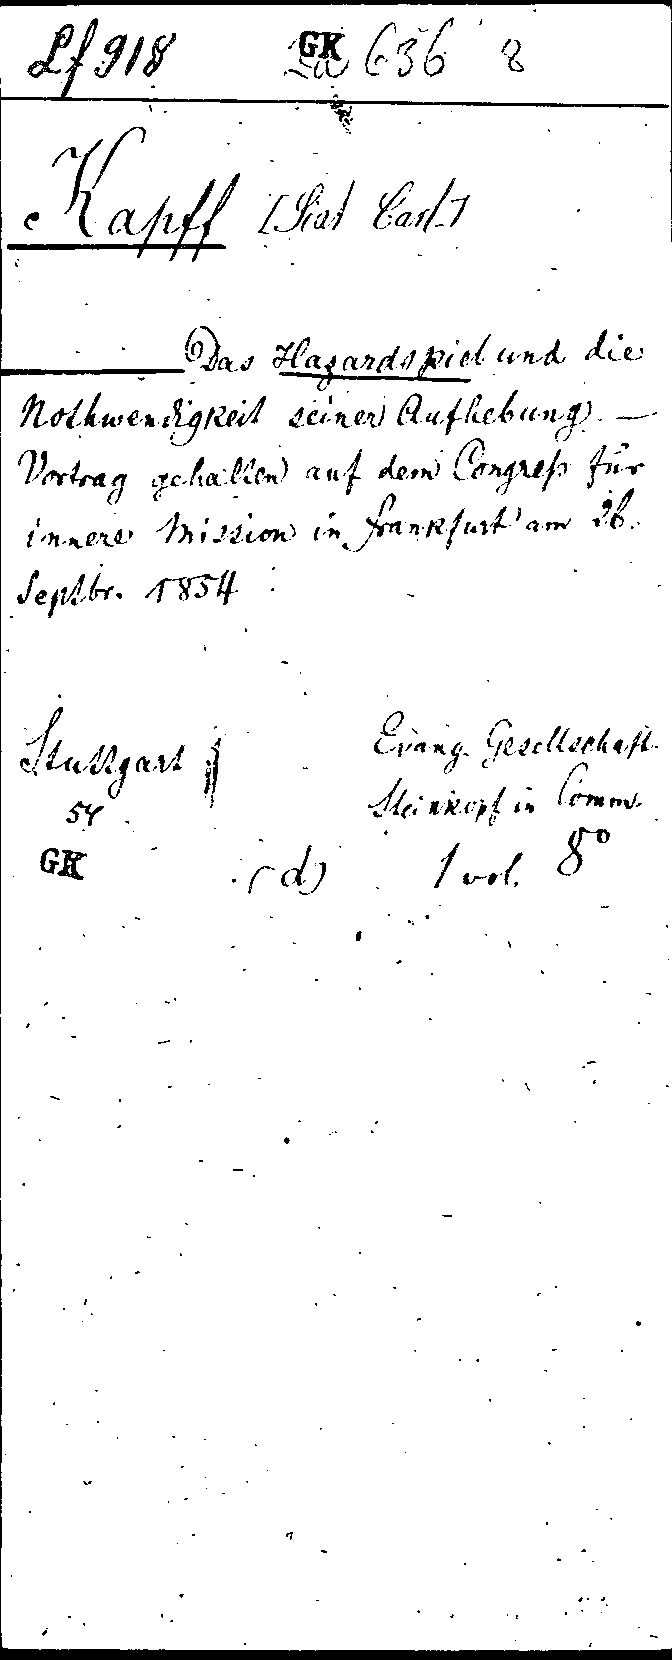 Lf 918 GK 636 8
Kapff [Sixt Carl.]
Das Hazardspiel und die
Nothwendigkeit seiner Aufhebung. —
Vortrag gehalten auf dem Congreß für
innere Mission in Frankfurt am 26.
Septbr. 1854
Stuttgart Evang. Gesellschaft.
54 Steinkopf in Comm.
GK (d) 1 vol. 8°